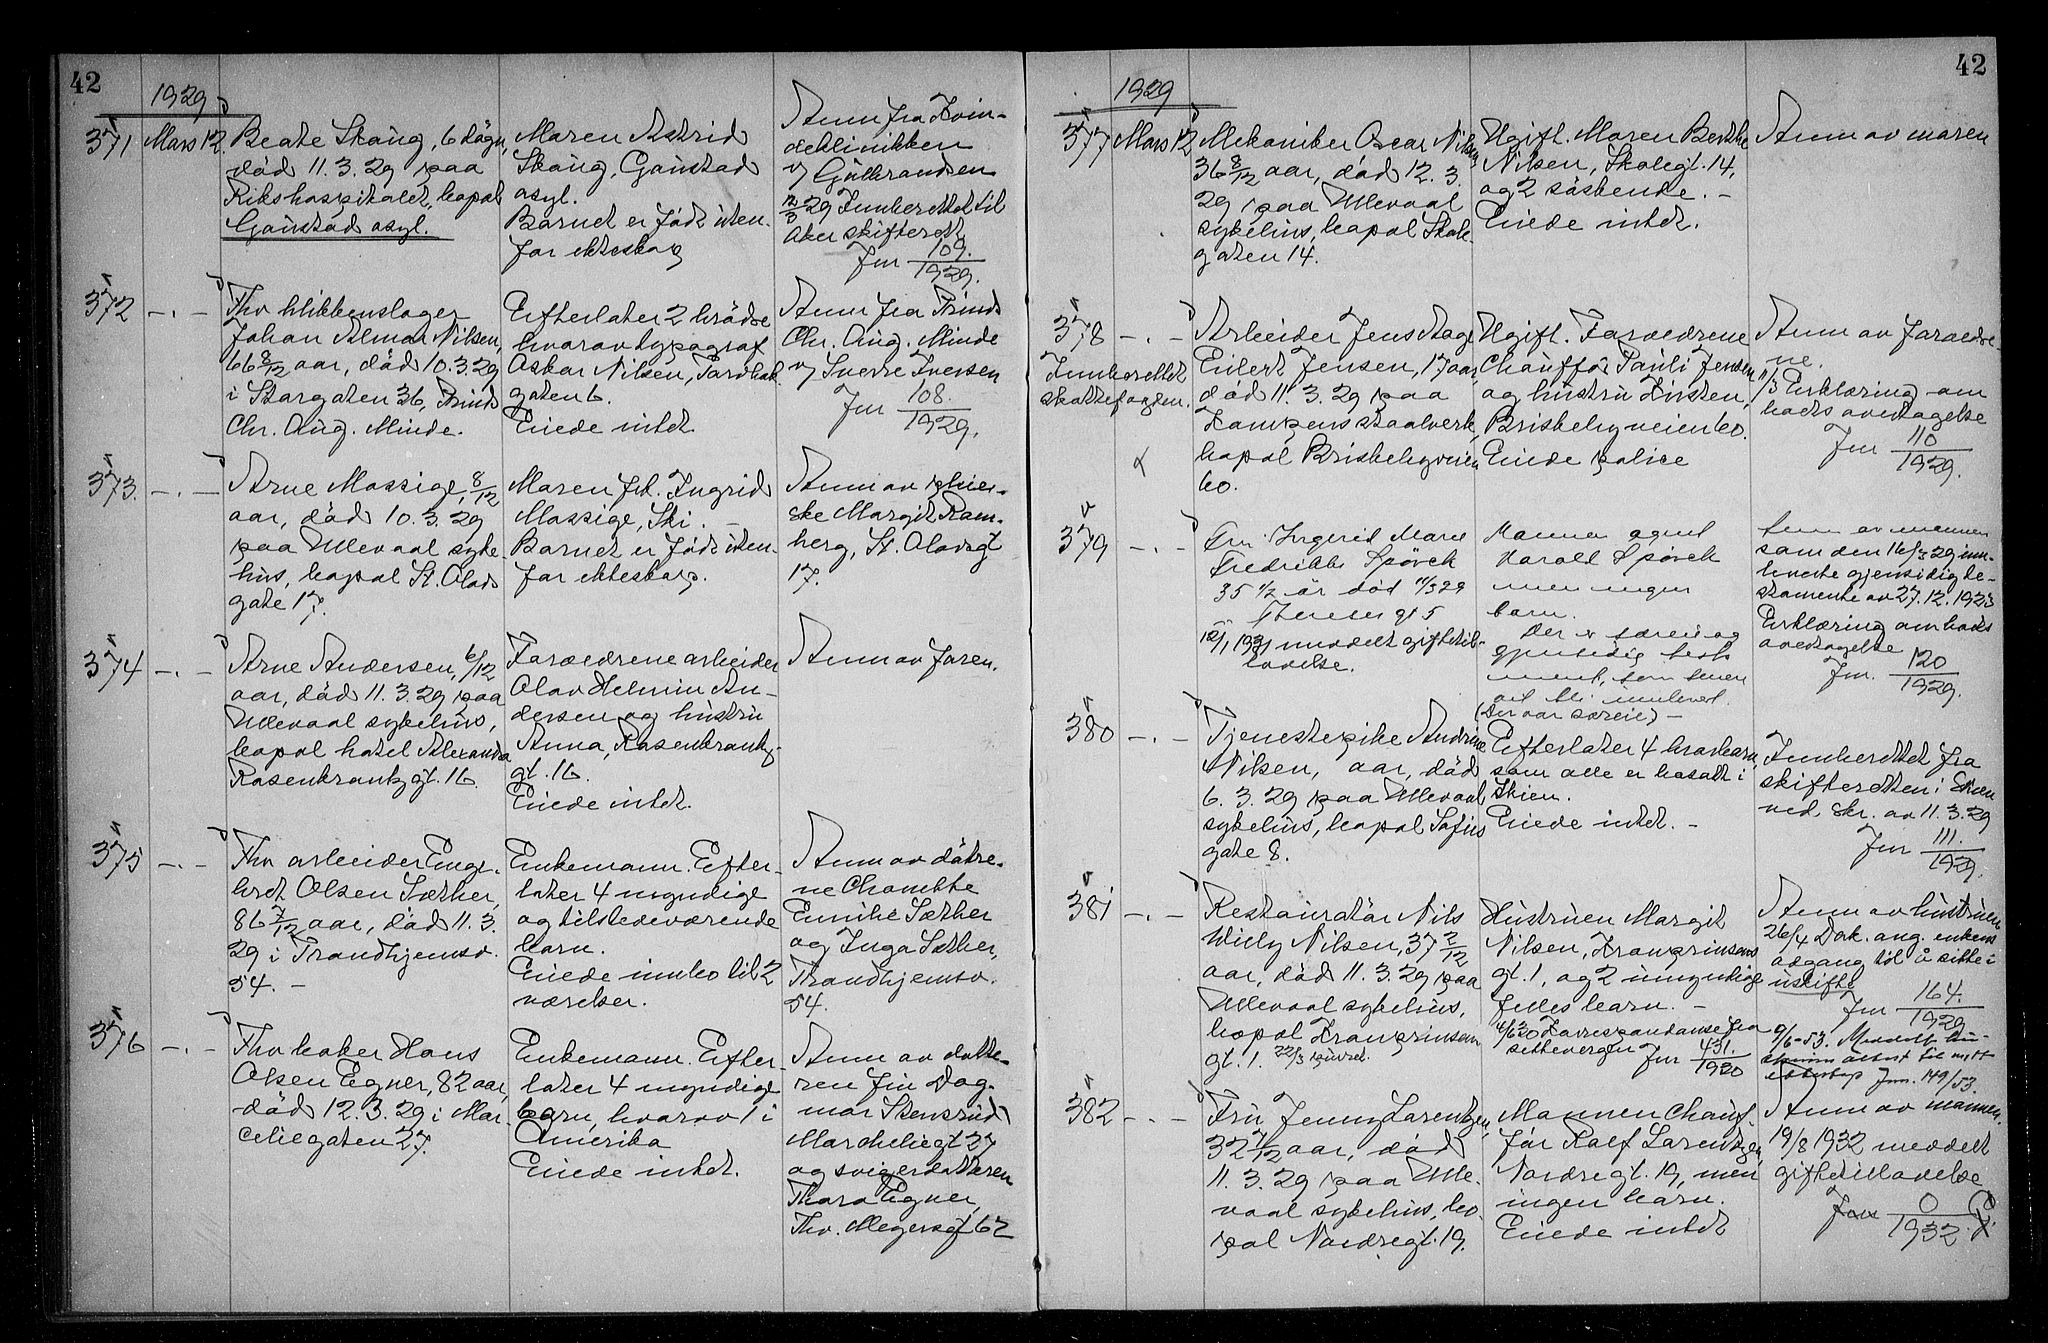 42
1929
371 Mars 12. Beate Skaug, 6 døgn,
død 11.3.29 paa
Rikshospitalet, bopæl
Gaustad asyl.
Moren Astrid
Skaug, Gaustad
asyl.
Barnet er født uten-
for ekteskap
Anm fra Kvin-
deklinikken
v/ Gulbrandsen
12/3 29 Innberettet til
Aker skifterett
Jnr 109./1929.
372 -.- Fhv blikkenslager
Johan Almar Nilsen,
66 8/12 aar, død 10.3.29
i Storgaten 36, Prinds
Chr. Aug. Minde.
Efterlater 2 brødre
hvorav typograf
Oskar Nilsen, Torvbak-
gaten 6.
Eiede intet.
Anm fra Prinds
Chr. Aug. Minde
v/ Sverre Iversen
Jnr 108./1929.
373. -.- Arne Massige, 8/12
aar, død 10.3.29
paa Ullevaal syke-
hus, bopæl St. Olavs
gate 17.
Moren frk. Ingrid
Massige, Ski. -
Barnet er født uten-
for ekteskap.
Anm av pleier-
ske Margit Ram-
berg, St. Olavsgt
17.
374 -.- Arne Andersen, 6/12
aar, død 11.3.29 paa
Ullevaal sykehus,
bopæl hotel Alexandra
Rosenkrantzgt. 16
Forældrene arbeider
Olav Helmin An-
dersen og hustru
Anna, Rosenkrantz-
gt. 16.
Eiede intet.
Anm av faren.
375 -.- Fhv arbeider Enge-
bret Olsen Sæther,
86 7/12 aar, død 11.3.
29 i Trondhjemsv.
54. -
Enkemann. Efter-
later 4 myndige
og tilstedeværende
barn.
Eiede innbo til 2
værelser.
Anm av døtre-
ne Charlotte
Emilie Sæther
og Inga Sæther,
Trondhjemsv.
54.
376 -.- Fhv baker Hans
Olsen Egner, 82 aar,
død 12.3.29 i Mar-
celiegaten 27.
Enkemann. Efter-
later 4 myndige
barn, hvorav 1 i
Amerika
Eiede intet.
Anm av datte-
ren fru Dag-
mar Stensrud
Marcheliegt 27
og svigerdatteren
Thora Egner,
Thv. Meyersgt 62
42
1929
377 Mars 12 Mekaniker Oscar Nilsen
36 8/12 aar, død 12.3.
29 paa Ullevaal
sykehus, bopæl Skole-
gaten 14.
Ugift. Moren Berthe
Nilsen, Skolegt. 14,
og 2 søskende. -
Eiede intet.
Anm av moren
378 -.- Arbeider Jens Aage
Innberettet
skattefogden.
Eilert Jensen, 17 aar,
død 11.3.29 paa
Kampens staalverk,
bopæl Briskebyveien
60.
Ugift. Forældrene
Chauffør Pauli Jensen
og hustru Kirsten,
Briskebyveien 60.
Eiede police
Anm av forældre-
ne.
11/3 Erklæring om
bods overtagelse
Jnr 110/1929.
379 -.- Fru Ingerid Marie
Fredrikke Spørck
35 1/2 år død 11/3 29
Theresesgt 5
10/1 1931 meddelt giftetil-
lovelse.
Mannen agent
Harald Spørck
men ingen
barn.
Der er særeie og
gjensidig testa-
ment, som senere
vil bli innlevert.
(Der var særeie) -
Anm av mannen
som den 16/3 29 inn-
leverte gjensidig te-
stamente av 27.12.1923
Erklæring om bods
overtagelse
Jnr. 120/1929.
380 -.- Tjenestepike Andrine
Nilsen, aar, død
6.3.29 paa Ullevaal
sykehus, bopæl Sofies
gate 8.
Efterlater 4 brorbarn,
som alle er bosatt i
Skien.
Eiede intet. -
Innberettet fra
skifteretten i Skien
ved skr. av 11.3.29
Jnr 111./1929.
381 -.- Restauratør Nils
Wiely Nilsen, 37 2/12
aar, død 11.3.29 paa
Ullevaal sykehus,
bopæl Kronprinsens
gt. 1.
Hustruen Margit
Nilsen, Kronprinsens
gt. 1, og 2 umyndige
felles barn. -
4/6 30 Korrespondanse fra
settevergen Jnr 431./1930
Anm av hustruen
26/4 Dok. ang. enkens
adgang til å sitte i
uskifte
Jnr 164./1929
9/6-53.
Jnr. 149/53.
382 -.- Fru Jenny Lorentzen,
32 7/12 aar, død
11.3.29 paa Ulle-
vaal sykehus, bo-
pæl Nordregt. 19.
Mannen chauf-
før Rolf Lorentzen
Nordregt. 19, men
ingen barn.
Eiede intet
Anm av mannen.
19/8 1932 meddelt
giftetillovelse
Jnr 0/1932